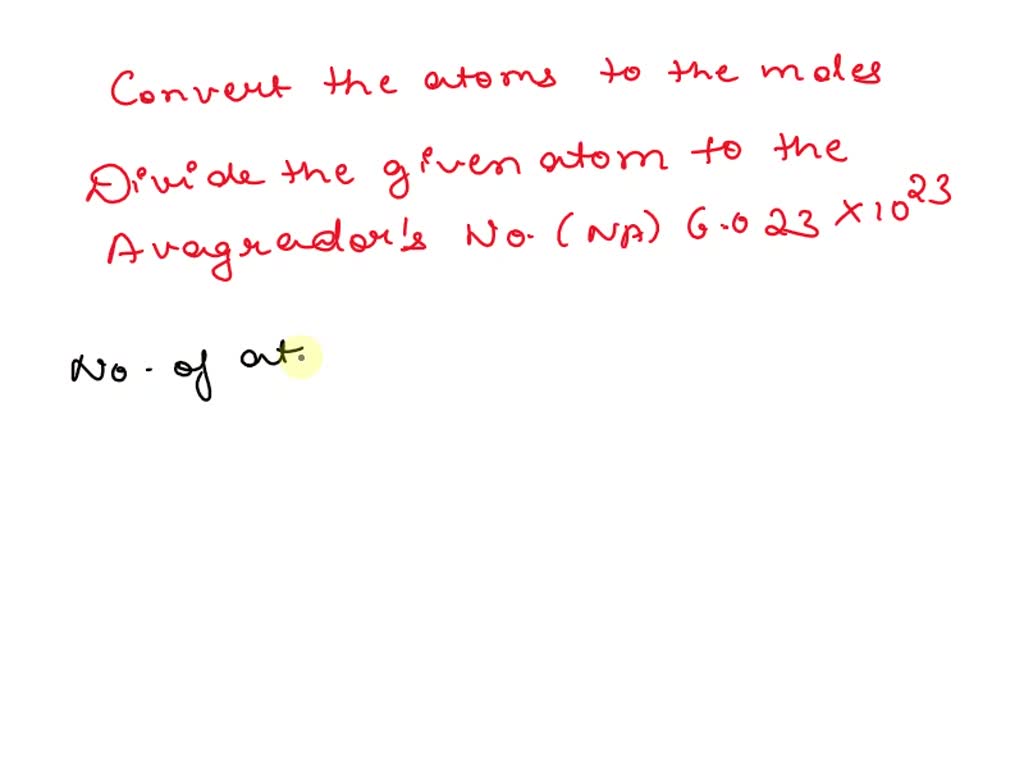 Convert the atoms to the moles
Divide the given atom to the
Avagrador's No. (NA) 6.023 × 10²³
No. of at.